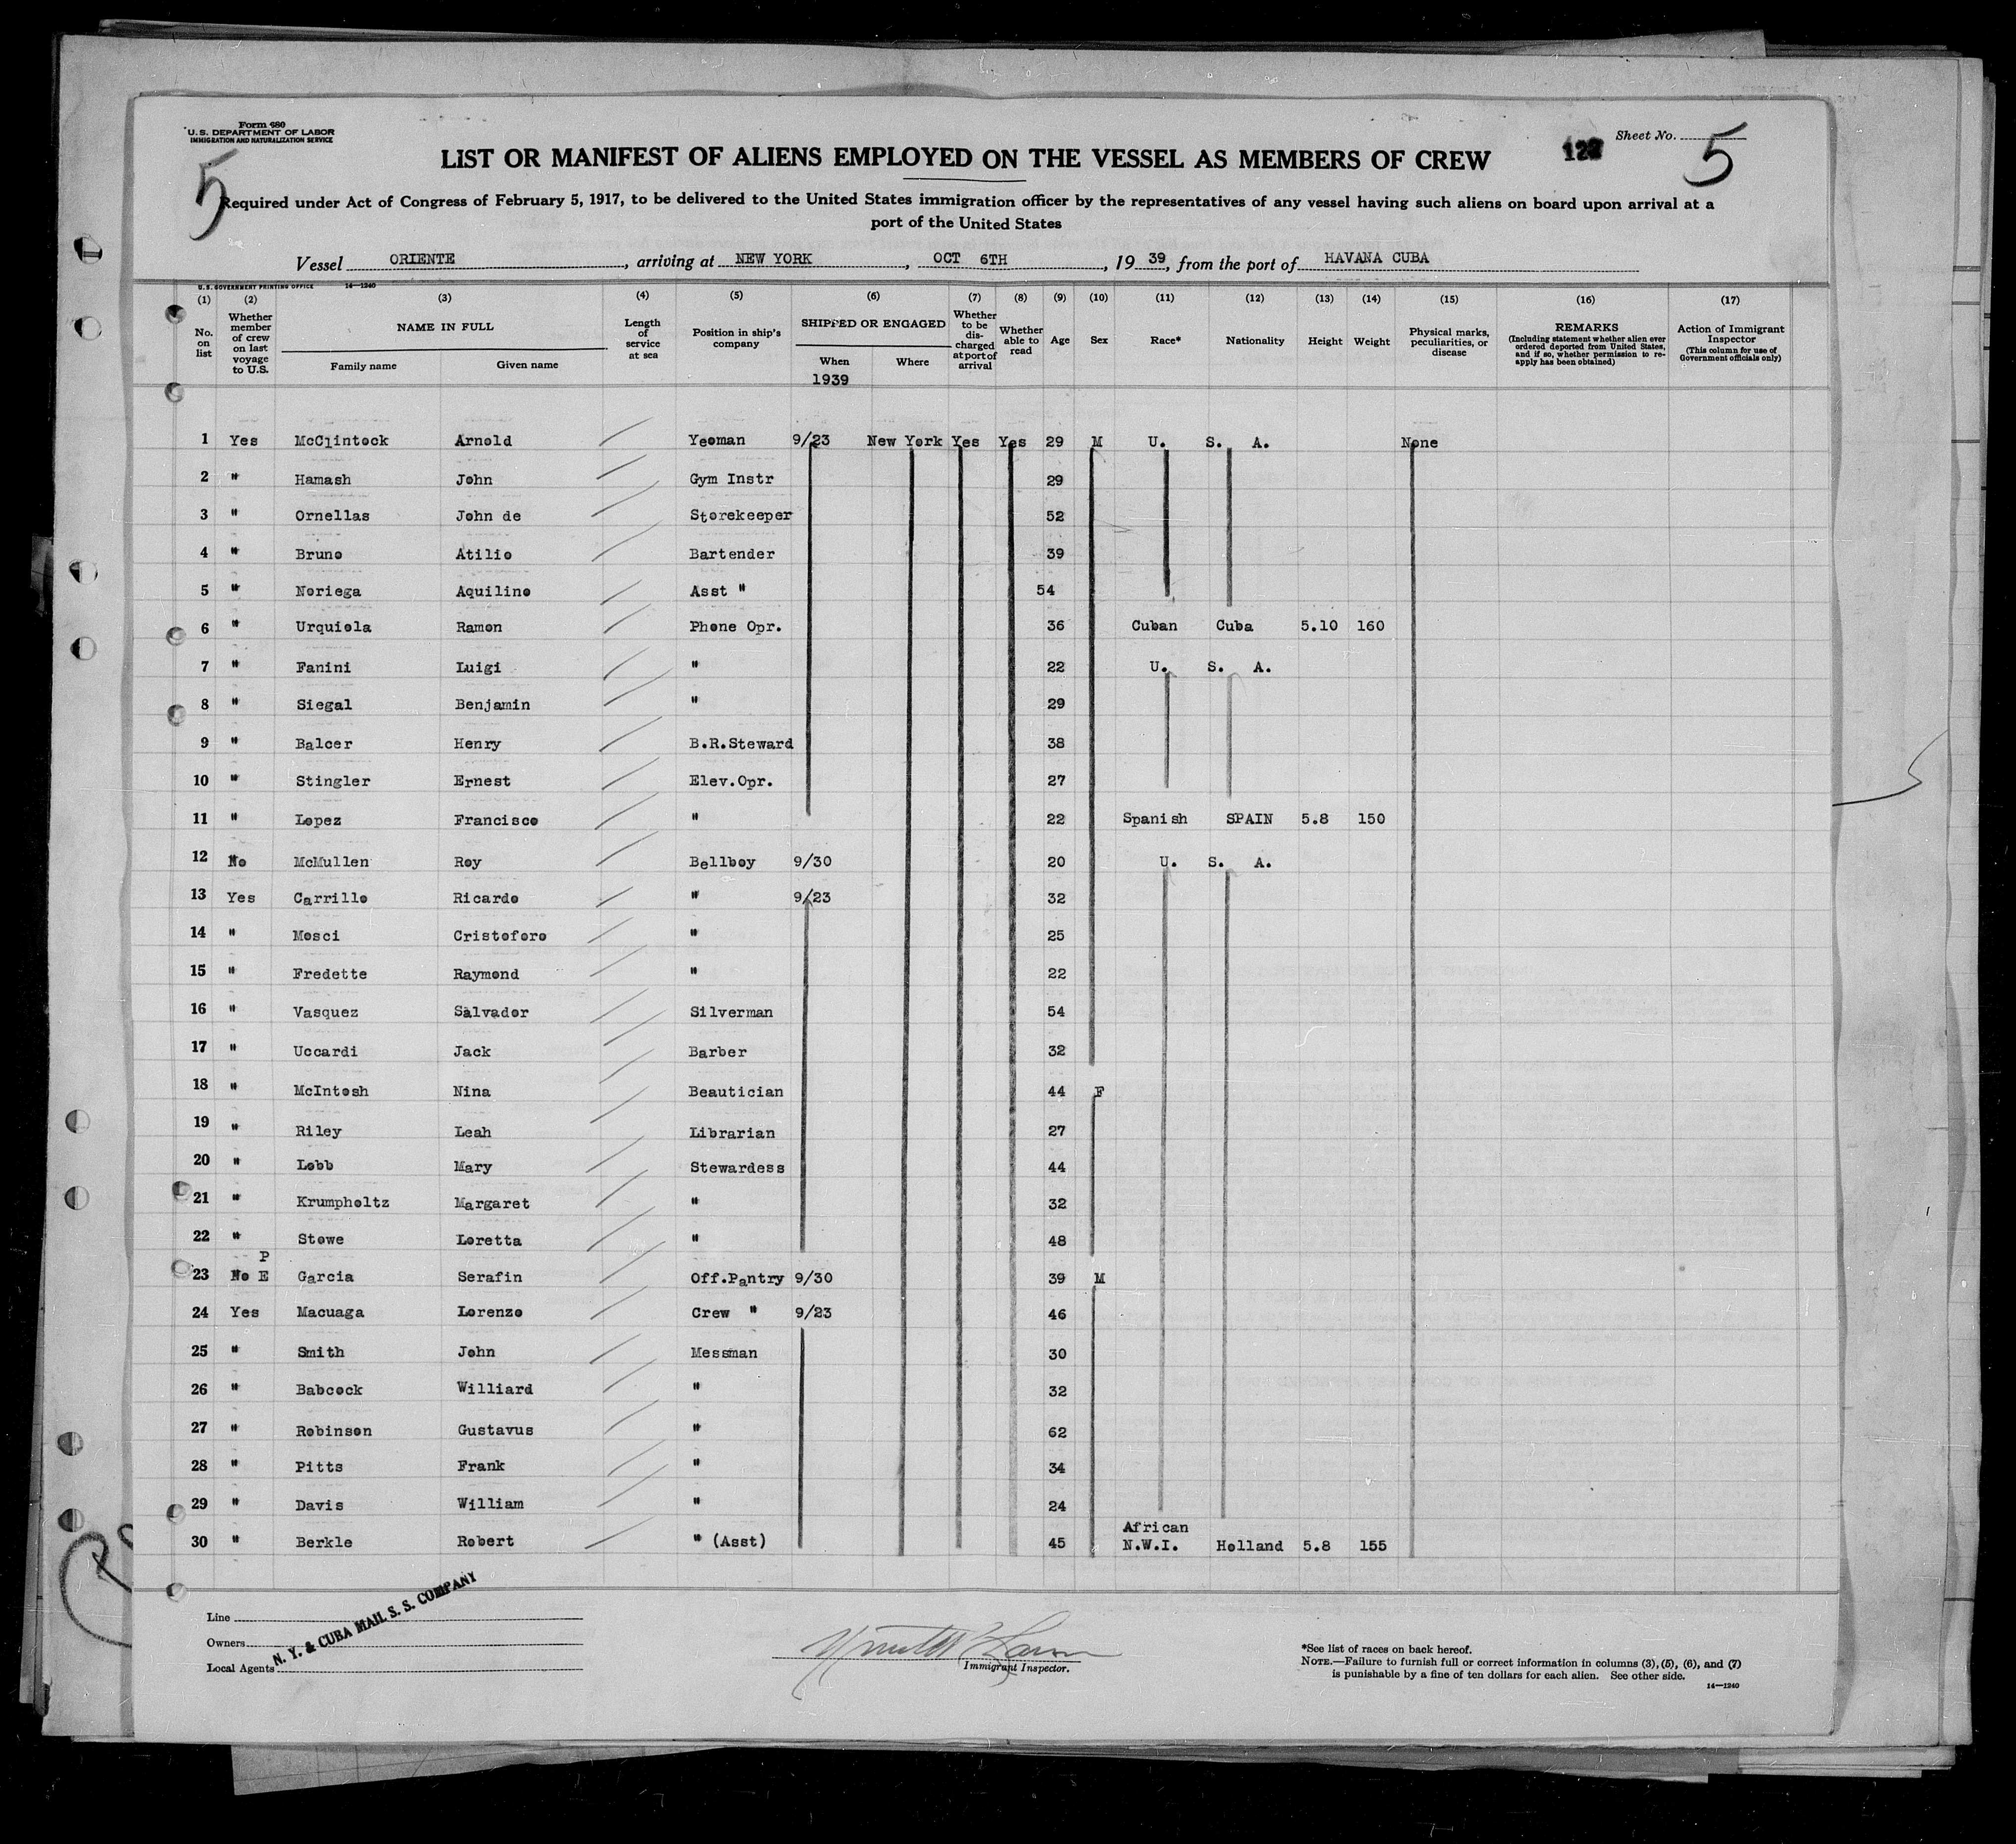 Form 680
U. S. DEPARTMENT OF LABOR
IMMIGRATION AND NATURALIZATION SERVICE
5
LIST OR MANIFEST OF ALIENS EMPLOYED ON THE VESSEL AS MEMBERS OF CREW
Sheet No. 5
Required under Act of Congress of February 5, 1917, to be delivered to the United States immigration officer by the representatives of any vessel having such aliens on board upon arrival at a
port of the United States
Vessel ORIENTE, arriving at NEW YORK, OCT 6TH, 19 39, from the port of HAVANA CUBA
U. S. GOVERNMENT PRINTING OFFICE 14—1240
(1) (2) (3) (4) (5) (6) (7) (8) (9) (10) (11) (12) (13) (14) (15) (16) (17)
No. on list
Whether member of crew on last voyage to U.S.
NAME IN FULL
Family name Given name
Length of service at sea
Position in ship's company
SHIPPED OR ENGAGED
When Where
1939
Whether to be discharged at port of arrival
Whether able to read
Age
Sex
Race*
Nationality
Height
Weight
Physical marks, peculiarities, or disease
REMARKS
(Including statement whether alien ever ordered deported from United States, and if so, whether permission to reapply has been obtained)
Action of Immigrant Inspector
(This column for use of Government officials only)
1 Yes McClintock Arnold Yeoman 9/23 New York Yes Yes 29 M U. S. A. None
2 " Hamash John Gym Instr 29
3 " Ornellas John de Storekeeper 52
4 " Bruno Atilio Bartender 39
5 " Noriega Aquilino Asst " 54
6 " Urquiola Ramon Phone Opr. 36 Cuban Cuba 5.10 160
7 " Fanini Luigi " 22 U. S. A.
8 " Siegal Benjamin " 29
9 " Balcer Henry B.R.Steward 38
10 " Stingler Ernest Elev.Opr. 27
11 " Lopez Francisco " 22 Spanish SPAIN 5.8 150
12 No McMullen Roy Bellboy 9/30 20 U. S. A.
13 Yes Carrillo Ricardo " 9/23 32
14 " Mosci Cristoforo " 25
15 " Fredette Raymond " 22
16 " Vasquez Salvador Silverman 54
17 " Uccardi Jack Barber 32
18 " McIntosh Nina Beautician 44 F
19 " Riley Leah Librarian 27
20 " Lobb Mary Stewardess 44
21 " Krumpholtz Margaret " 32
22 " Stowe Loretta " 48
P
23 No E Garcia Serafin Off.Pantry 9/30 39 M
24 Yes Macuaga Lorenzo Crew " 9/23 46
25 " Smith John Messman 30
26 " Babcock Williard " 32
27 " Robinson Gustavus " 62
28 " Pitts Frank " 34
29 " Davis William " 24
30 " Berkle Robert " (Asst) 45 African N.W.I. Holland 5.8 155
Line
Owners
Local Agents
N. Y. & CUBA MAIL S. S. COMPANY
Immigrant Inspector.
*See list of races on back hereof.
NOTE.—Failure to furnish full or correct information in columns (3), (5), (6), and (7)
is punishable by a fine of ten dollars for each alien. See other side.
14—1240